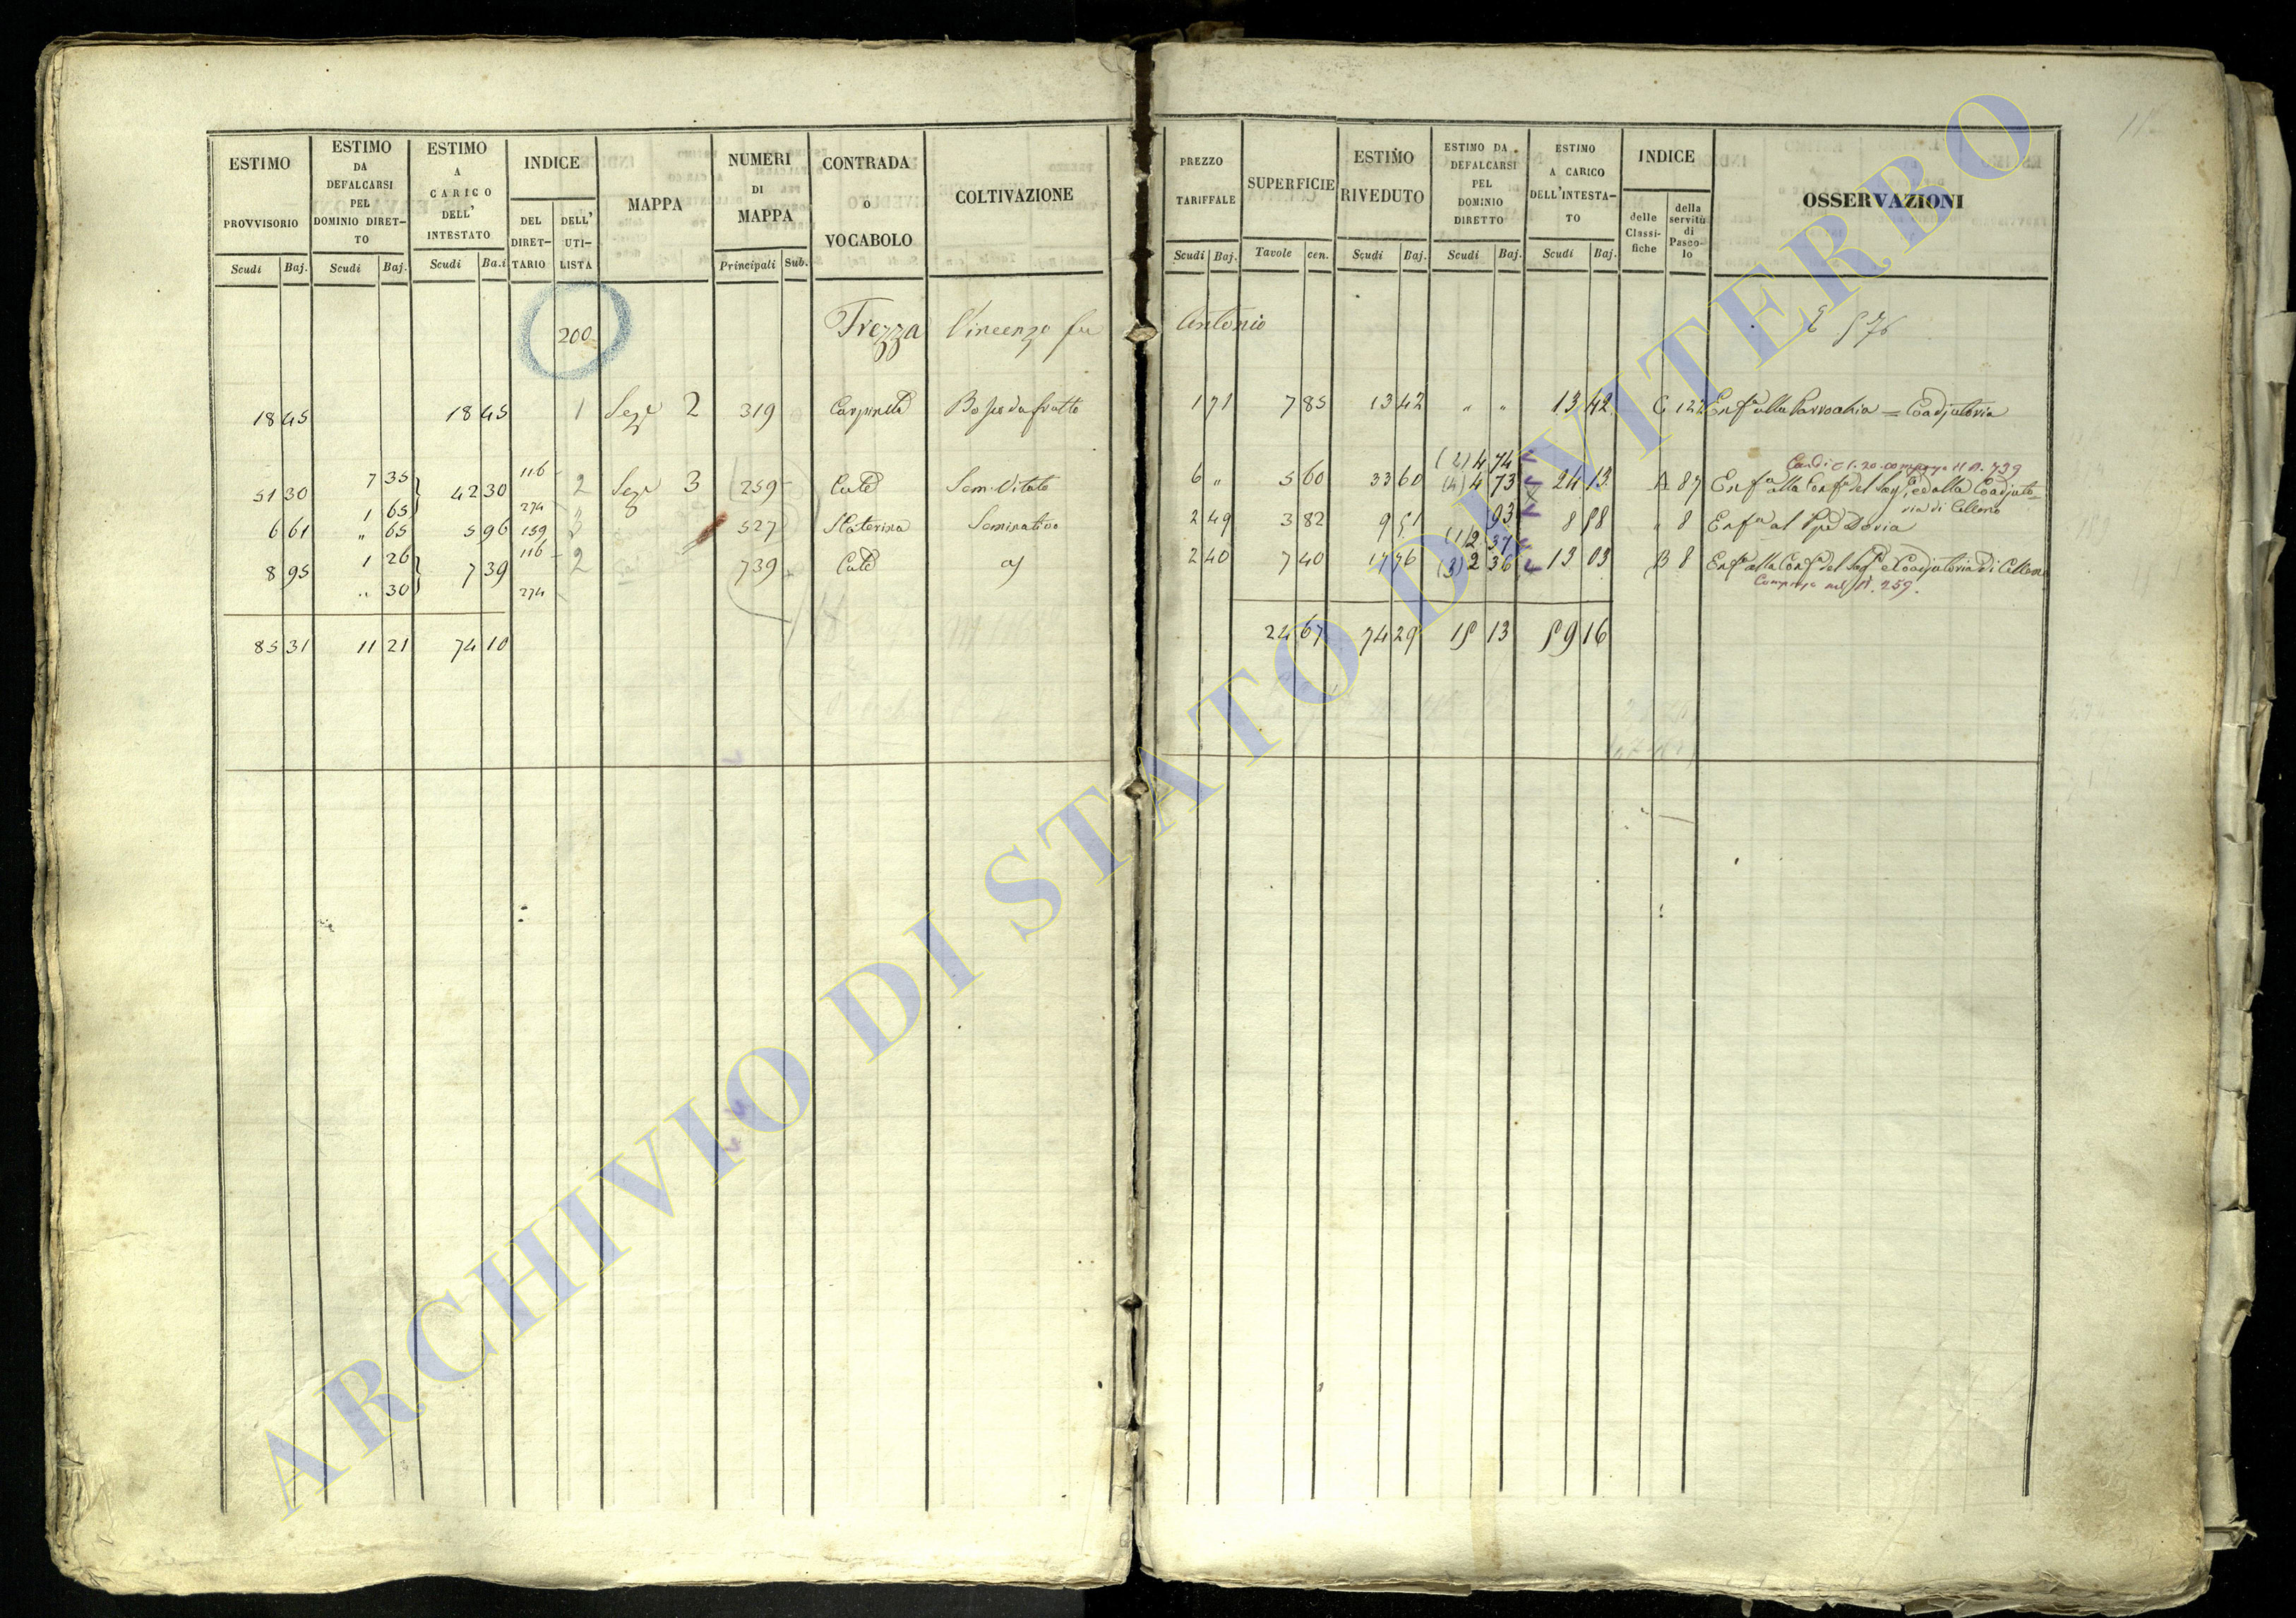 ESTIMO PROVVISORIO Scudi Baj. ESTIMO DA DEFALCARSI PEL DOMINIO DIRET-TO Scudi Baj. ESTIMO A CARICO DELL' INTESTATO Scudi Ba.i INDICE DEL DIRET-TARIO DELL' UTI-LISTA MAPPA NUMERI DI MAPPA Principali Sub. CONTRADA O VOCABOLO COLTIVAZIONE
PREZZO TARIFFALE Scudi Baj. SUPERFICIE Tavole cen. ESTIMO RIVEDUTO Scudi Baj. ESTIMO DA DEFALCARSI PEL DOMINIO DIRETTO Scudi Baj. ESTIMO A CARICO DELL'INTESTA-TO Scudi Baj. INDICE delle Classi-fiche della servitù di Pasco-lo OSSERVAZIONI
11
200 Trezza Vincenzo fu Antonio
18 45 18 45 1 Sez 2 319 1 71 7 85 13 42 " " 13 42 C 122 Enf alla Parrochia = Coadjutoria
7 35 116 (2) 4 74
51 30 42 30 2 Sez 3 259 Cute Sem. Vitato 6 " 5 60 33 60 (4) 4 73 24 13 A 87 Enf alla Conf del Sag ed alla Coadjuto-
1 65 274 ria di Celleno
6 61 " 65 5 96 159 527 S Caterina Seminativo 2 49 3 82 9 51 93 8 58 " 8 Enf al Doria
1 26 116 (1) 2 37
8 95 7 39 2 739 Cute 2 40 7 40 17 76 (3) 2 36 13 03 B 8 Enf alla Conf del Sag e Coadjutoria di Celleno
" 30 274 Compreso nel N. 259.
85 31 11 21 74 10 24 67 74 29 15 13 59 16
ARCHIVIO DI STATO DI VITERBO